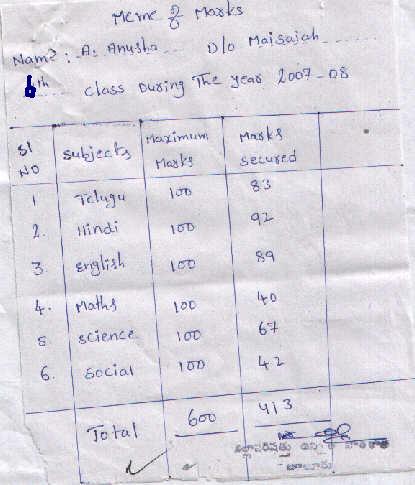 Meme of Marks
Name: A. Anusha D/o Maisaiah
6th class During The year 2007-08
Sl NO Subjects Maximum Marks Marks secured
1 Telugu 100 83
2. Hindi 100 92
3. English 100 89
4. Maths 100 40
5 Science 100 67
6. Social 100 42
Total 600 413